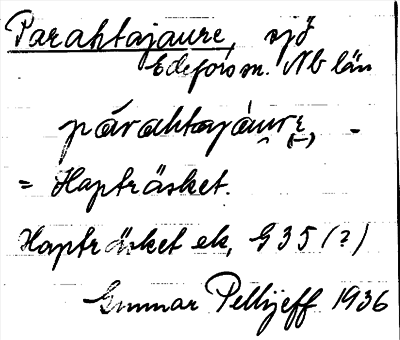 Parahtajaure, sjö
Edefors sn. Nb län
párahtajáurɛ -
(-)
= Hapträsket.
Hapträsket ek, G 35 (?)
Gunnar Pellijeff 1936